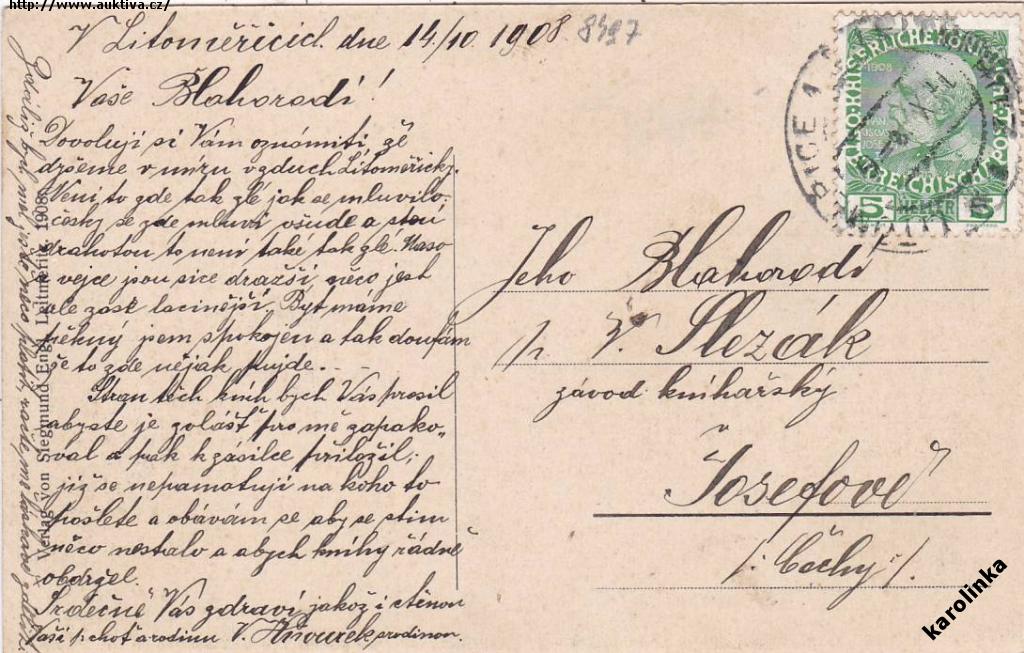 http://www.auktiva.cz/
V Litoměřicích dne 14/10 1908.
8497
Vaše Blahorodí!
Dovoluji si Vám oznámiti, že
držeme v míru vzduch Litoměřický.
Není to zde tak zlé jak se mluvilo,
česky se zde mluví všude a stou
drahotou to není také tak zlé. Maso
vejce jsou sice dražší, něco jest
ale zase lacinější. Byt máme
pěkný jsem spokojen a tak doufám
že to zde nějak pujde...
Stran těch knih bych Vás prosil
abyste je zvlášť pro mě zapako-
val a pak k zásilce přiložil,
již se nepamatuji na koho to
pošlete a obávám se aby se stim
něco nestalo a abych knihy řádně
obdržel.
Srdečně Vás zdraví jakož i ctěnou
Vaší choť a rodinu V. rodinou.
Verlag von Siegmund Engl, Leitmeritz. 1908.
KAISERLICHE KÖNIGLICHE
ÖSTERREICHISCHE POST
1908
5 HELLER 5
Jeho Blahorodí
p. V. Slezák
závod knihařský
Josefově
/: Čechy :/
karolinka